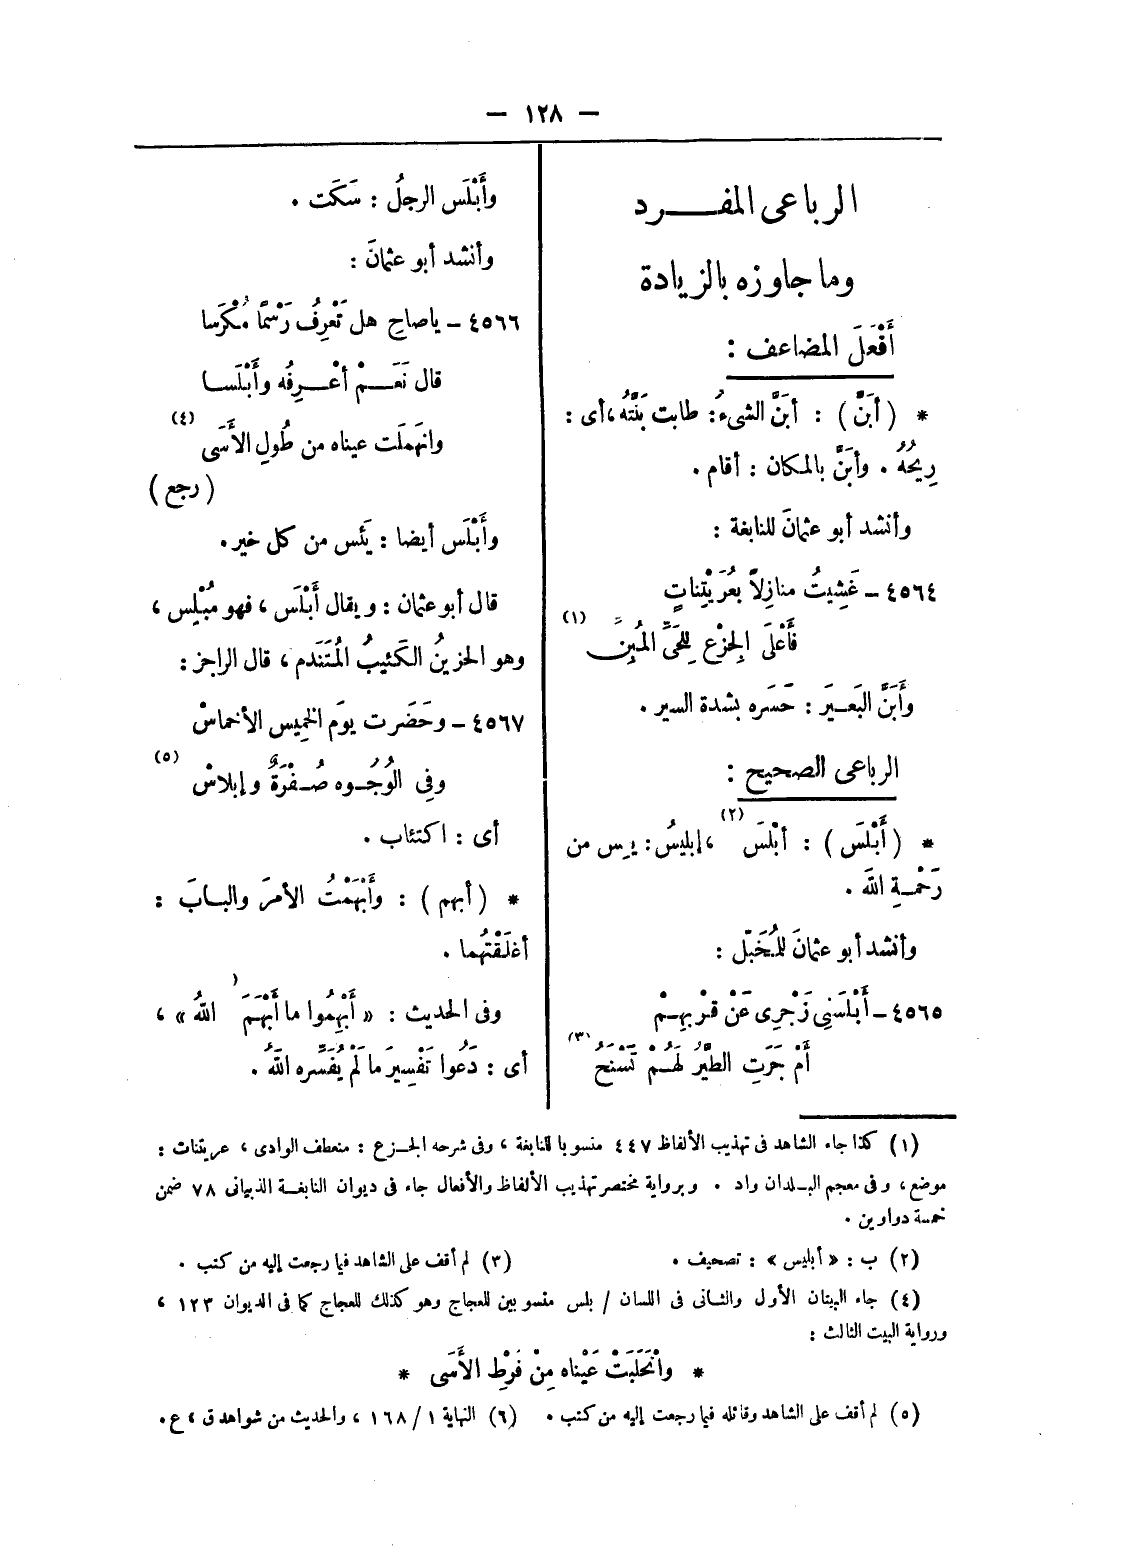 — ١٢٨ —
الرباعى المفـــرد
وما جاوزه بالزيادة
أَفْعَلَ المضاعف :
* ( أبَنَّ ) : أبَنَّ الشىءُ: طابت بَنَّتُه، أى :
رِيحُهُ . وأبَنَّ بالمكان : أقام .
وأنشد أبو عثمانَ للنابغة :
٤٥٦٤ – غَشِيتُ منازِلاً بعُرَيْتِناتٍ
فَأَعْلَى الجِزْعِ لِلحَىِّ المُبِنِّ (١)
وأَبَنَّ البَعـيَر : حَسَره بشدة السير .
الرباعى الصحيح :
* ( أَبْلَسَ ) : أبْلسَ (٢) ، إبليسُ : يـس من
رَحْمـةِ اللهَ .
وأنشد أبو عثمانَ للُمخَبّل :
٤٥٦٥ – أَبْلَسَنِى زَجْرِى عَنْ قـرْبهِـمْ
أَمْ جَرَتِ الطَّيْرُ لَهُـمْ تَسْنَحُ (٣)
وأَبْلَس الرجلُ : سَكَت .
وأنشد أبو عثمانَ :
٤٥٦٦ – ياصاحِ هل تَعْرِفُ رَسْمًا مُكْرَسا
قال نَعَـــمْ أعْـــرِفُه وأَبْلَســا
وانهَملَت عيناه من طُولِ الأَسَى (٤)
( رجع )
وأَبْلَس أيضا : يَئس من كل خير .
قال أبو عثمان : ويقال أَبْلَس ، فهو مُبْلِس ،
وهو الحزينُ الكَئيبُ المُتَنَدم ، قال الراجز :
٤٥٦٧ – وحَضَرت يومَ الخمِيس الأخماسْ
وفِى الوُجُــوه صُــفْرَةٌ وإبلاسْ (٥)
أى : اكتئاب .
* ( أبهم ) : وأَبْهَمْتُ الأمرَ والبـابَ :
أغلَقْتُهما .
وفى الحديث : « أَبْهِمُوا ما أَبْهَمَ ( اللهُ » ،
أى : دَعُوا تَفْسِيرَ ما لَمْ يُفَسِّره اللهُ .
(١) كذا جاء الشاهد فى تهذيب الألفاظ ٤٤٧ منسوبا للنابغة ، وفى شرحه الجـزع : منعطف الوادى ، عريتنات :
موضع ، وفى معجم البـلدان واد . وبرواية مختصر تهذيب الألفاظ والأفعال جاء فى ديوان النابغـة الذبيانى ٧٨ ضمن
خمسة دواوين .
(٢) ب : « أبليس » : تصحيف . (٣) لم أقف على الشاهد فيما رجعت إليه من كتب .
(٤) جاء البيتان الأول والثـانى فى اللسان / بلس منسوبين للعجاج وهو كذلك للعجاج كما فى الديوان ١٢٣ ،
ورواية البيت الثالث :
* وانْحَلَبَتْ عَيْناه مِنْ فَرْطِ الأَسَى *
(٥) لم أقف على الشاهد وقائله فيما رجعت إليه من كتب . (٦) النهاية ١ / ١٦٨ ، والحديث من شواهد ق ، ع .